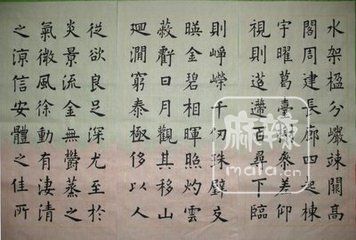 水架楹分巖竦闕高
閣周建長廊四起棟
宇膠葛臺榭參差仰
視則迢遰百尋下臨
則崢嶸千仞珠璧交
暎金碧相暉照灼雲
蔽虧日月觀其移山
迴澗窮泰極侈以人
從欲良足深尤至於
炎景流金無鬱蒸之
氣微風徐動有淒清
之涼信安體之佳所
麻辣
mala.cn